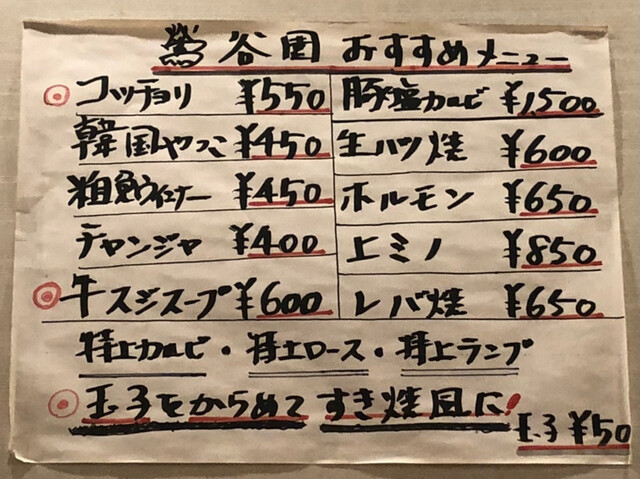 鶯谷園 おすすめメニュー
コッチョリ ¥550
韓国やっこ ¥450
粗挽ウィンナー ¥450
チャンジャ ¥400
牛スジスープ ¥600
豚塩カルビ ¥1,500
生ハツ焼 ¥600
ホルモン ¥650
上ミノ ¥850
レバ焼 ¥650
特上カルビ・特上ロース・特上ランプ
玉子をからめて すき焼風に!
玉子 ¥50